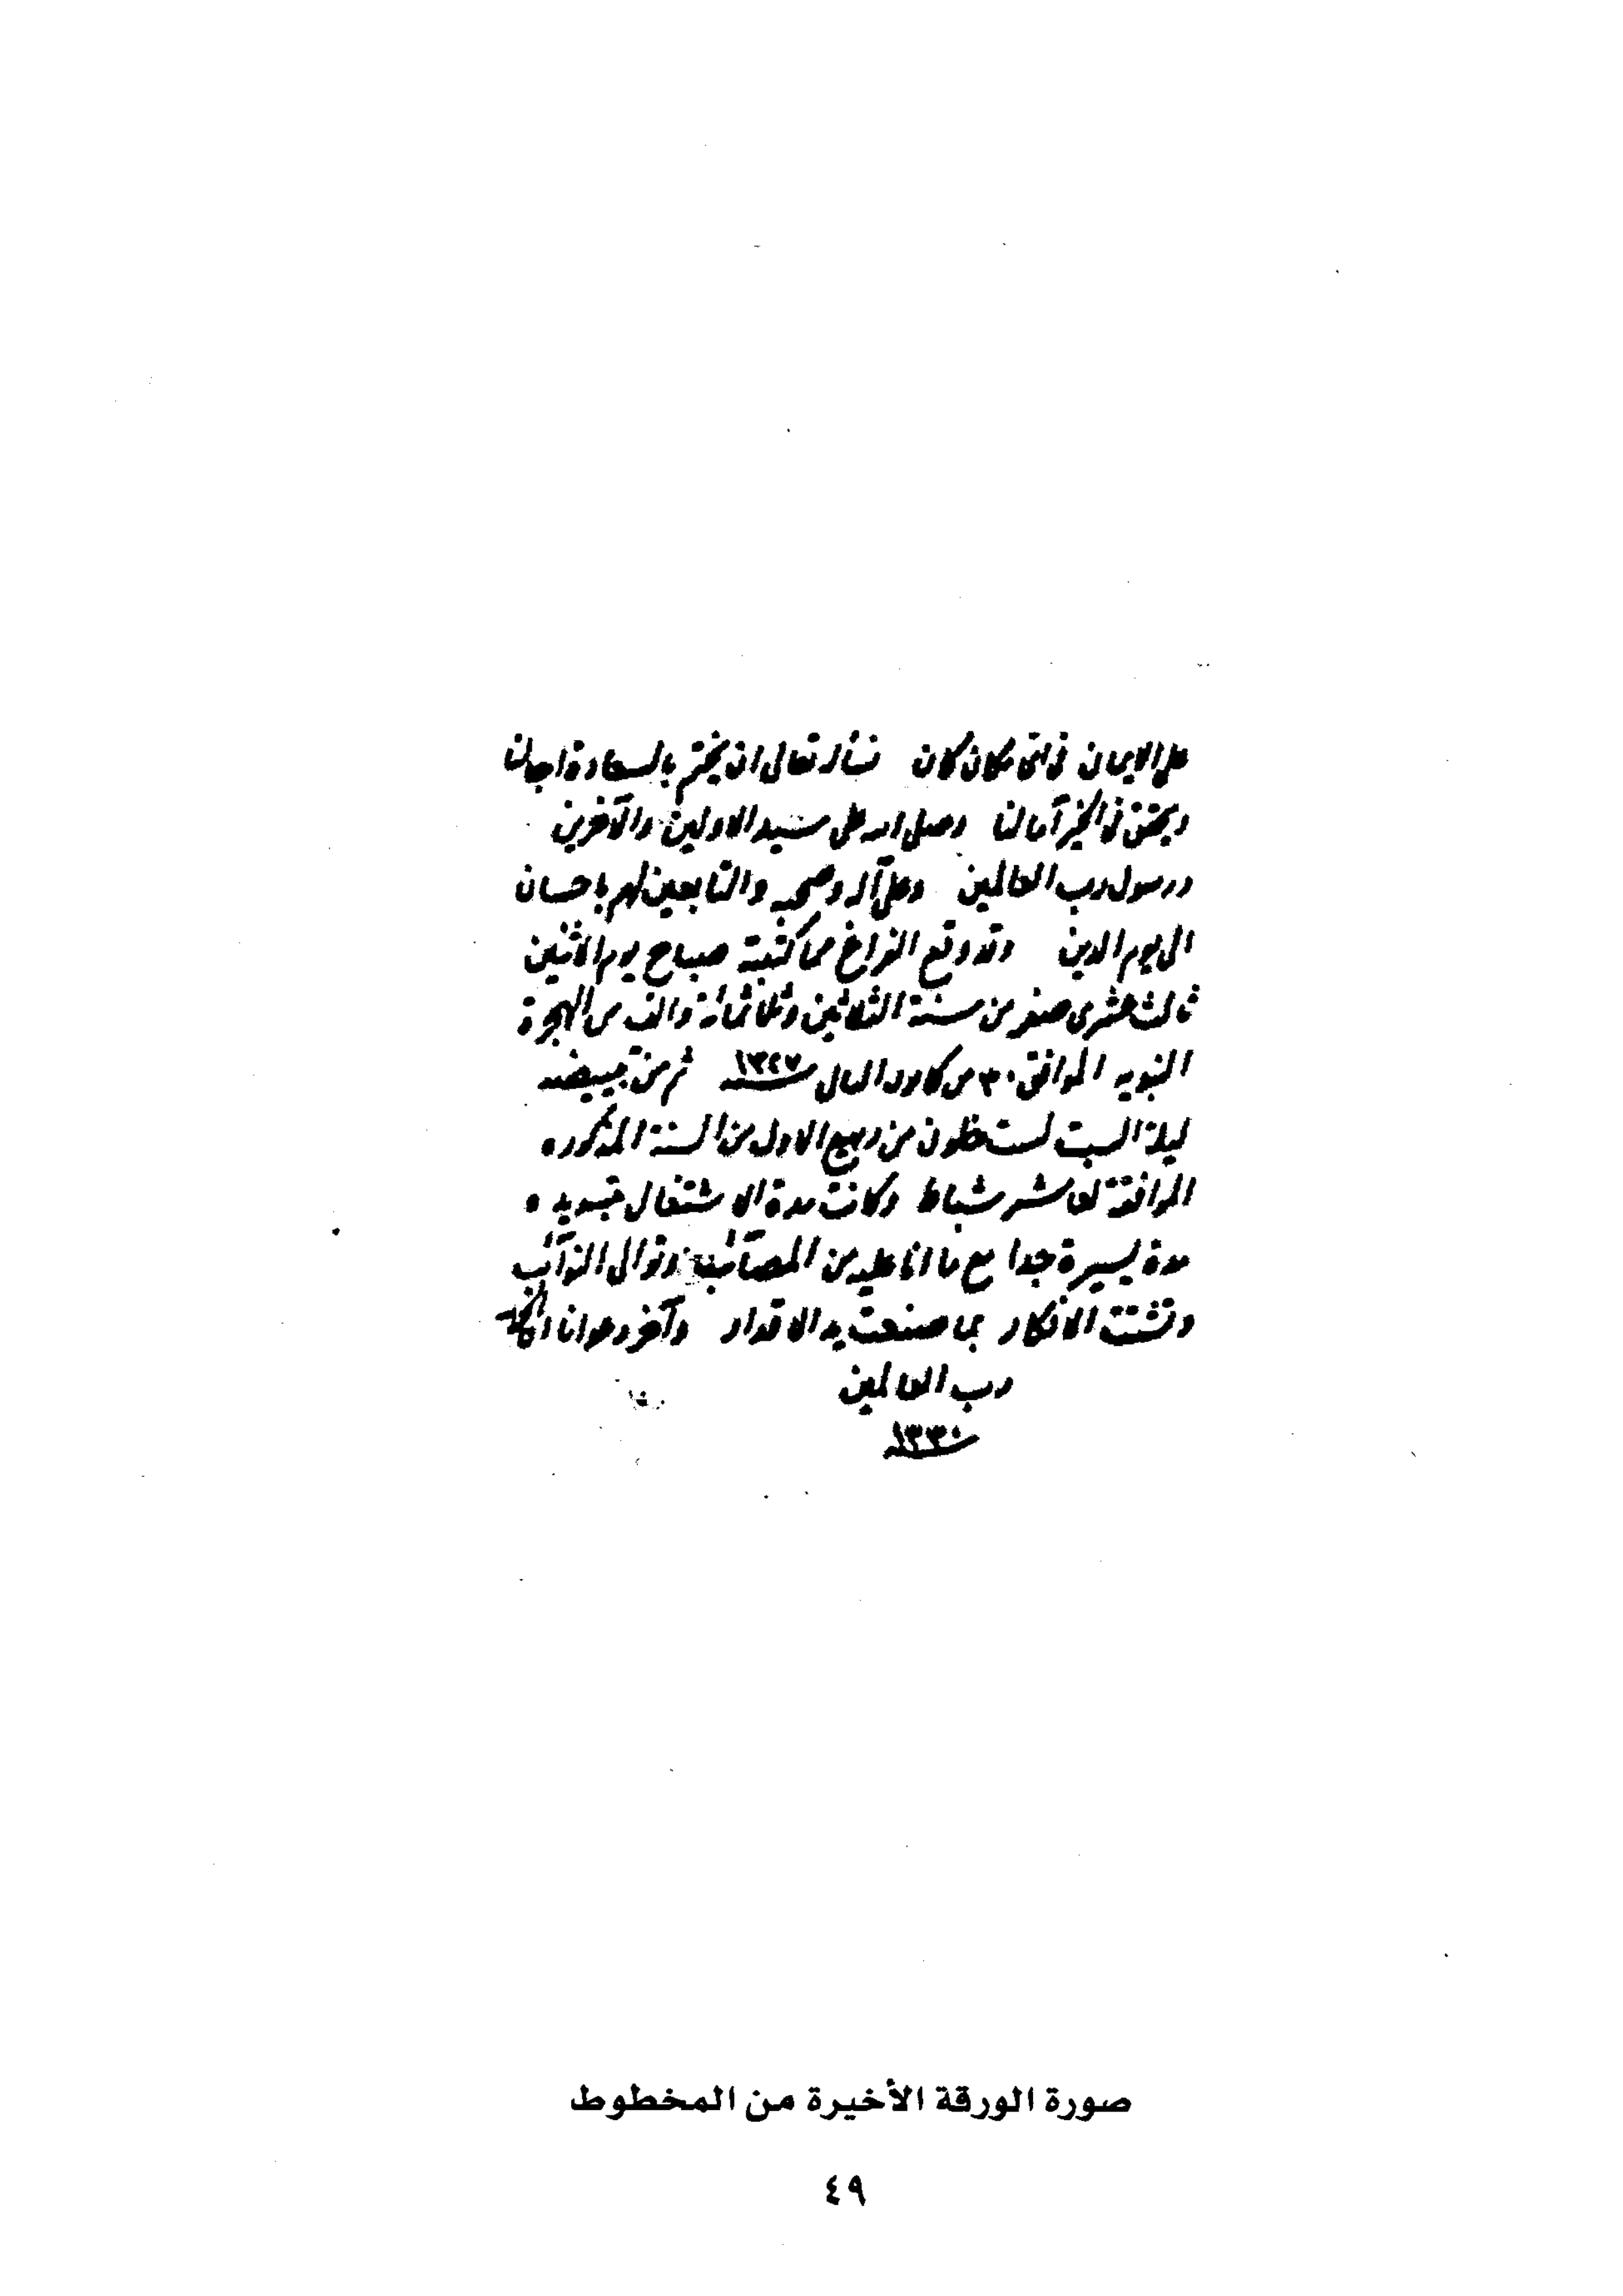 على الايمان في اي مكان كان نسأله تعالى ان يختم بالسعادة اجالنا
ويحقق في الخير آمالنا وصلى الله على سيد الاولين والآخرين
ورسول رب العالمين وعلى آله وصحبه والتابعين لهم باحسان
الى يوم الدين وقد وقع الفراغ مما كتبته صباح يوم الاثنين
ثالث عشرى صفر من سنة الثلاثين وثلاثمائة والف من الهجرة
النبويه الموافق ٣٠ من كانون الثاني سنة ١٣٢٧ ثم من تبييضه
ليلة السبت لست خلون من ربيع الاول من السنة المذكوره
الموافقة لعاشر شباط وكانت مدة الاشتغال بتسويده
مدة يسيرة جدا مع ما انا عليه من المصائب وتوالى النوآئب
وتشتت الافكار بما صنعت يد الاقدار وآخر دعوانا ان الحمد لله
رب العالمين
سنة ١٣٣٠
صورة الورقة الأخيرة من المخطوط
٤٩